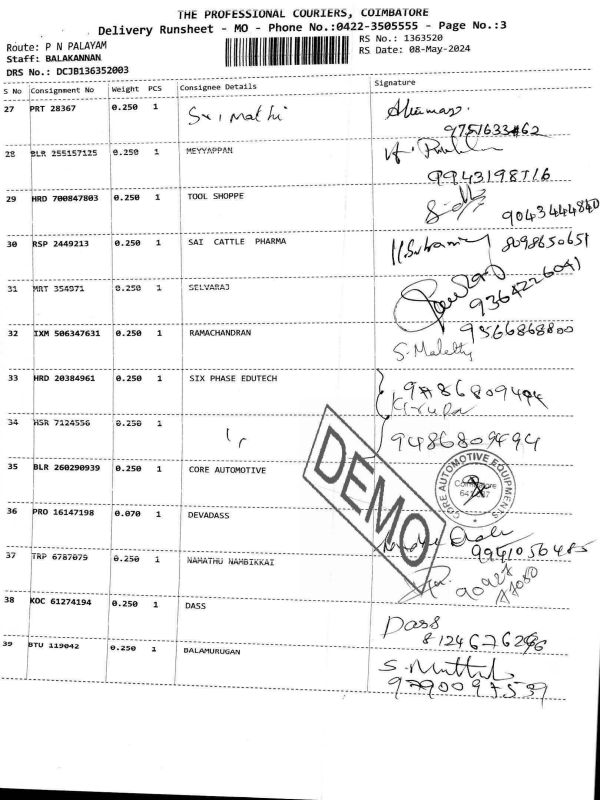 THE PROFESSIONAL COURIERS, COIMBATORE
Delivery Runsheet - MO - Phone No.:0422-3505555 - Page No.:3
Route: P N PALAYAM
RS No.: 1363520
Staff: BALAKANNAN
RS Date: 08-May-2024
DRS No.: DCJB136352003
S No Consignment No Weight PCS Consignee Details Signature
27 PRT 28367 0.250 1 Srimathi
28 BLR 255157125 0.250 1 MEYYAPPAN
9943198716
29 HRD 700847803 0.250 1 TOOL SHOPPE
9043444840
30 RSP 2449213 0.250 1 SAI CATTLE PHARMA 8098650651
31 MRT 354971 0.250 1 SELVARAJ
9364226041
32 IXM 506347631 0.250 1 RAMACHANDRAN 9566868800
33 HRD 20384961 0.250 1 SIX PHASE EDUTECH
34 HSR 7124556 0.250 1
9486809494
35 BLR 260290939 0.250 1 CORE AUTOMOTIVE
CORE AUTOMOTIVE EQUIPMENTS
DEMO
36 PRO 16147198 0.070 1 DEVADASS
9941056485
37 TRP 6787079 0.250 1 NAMATHU NAMBIKKAI
38 KOC 61274194 0.250 1 DASS
Dass
39 BTU 119042 0.250 1 BALAMURUGAN
9790097539